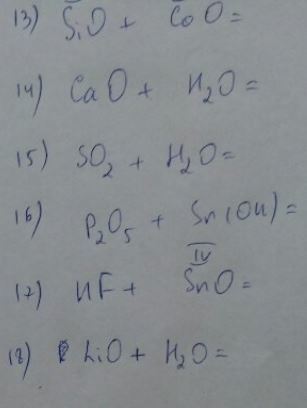 13) SiO + CoO =
14) CaO + H₂O =
15) SO₂ + H₂O =
16) P₂O₅ + Sn(OH) =
IV
17) HF + SnO =
18) LiO + H₂O =